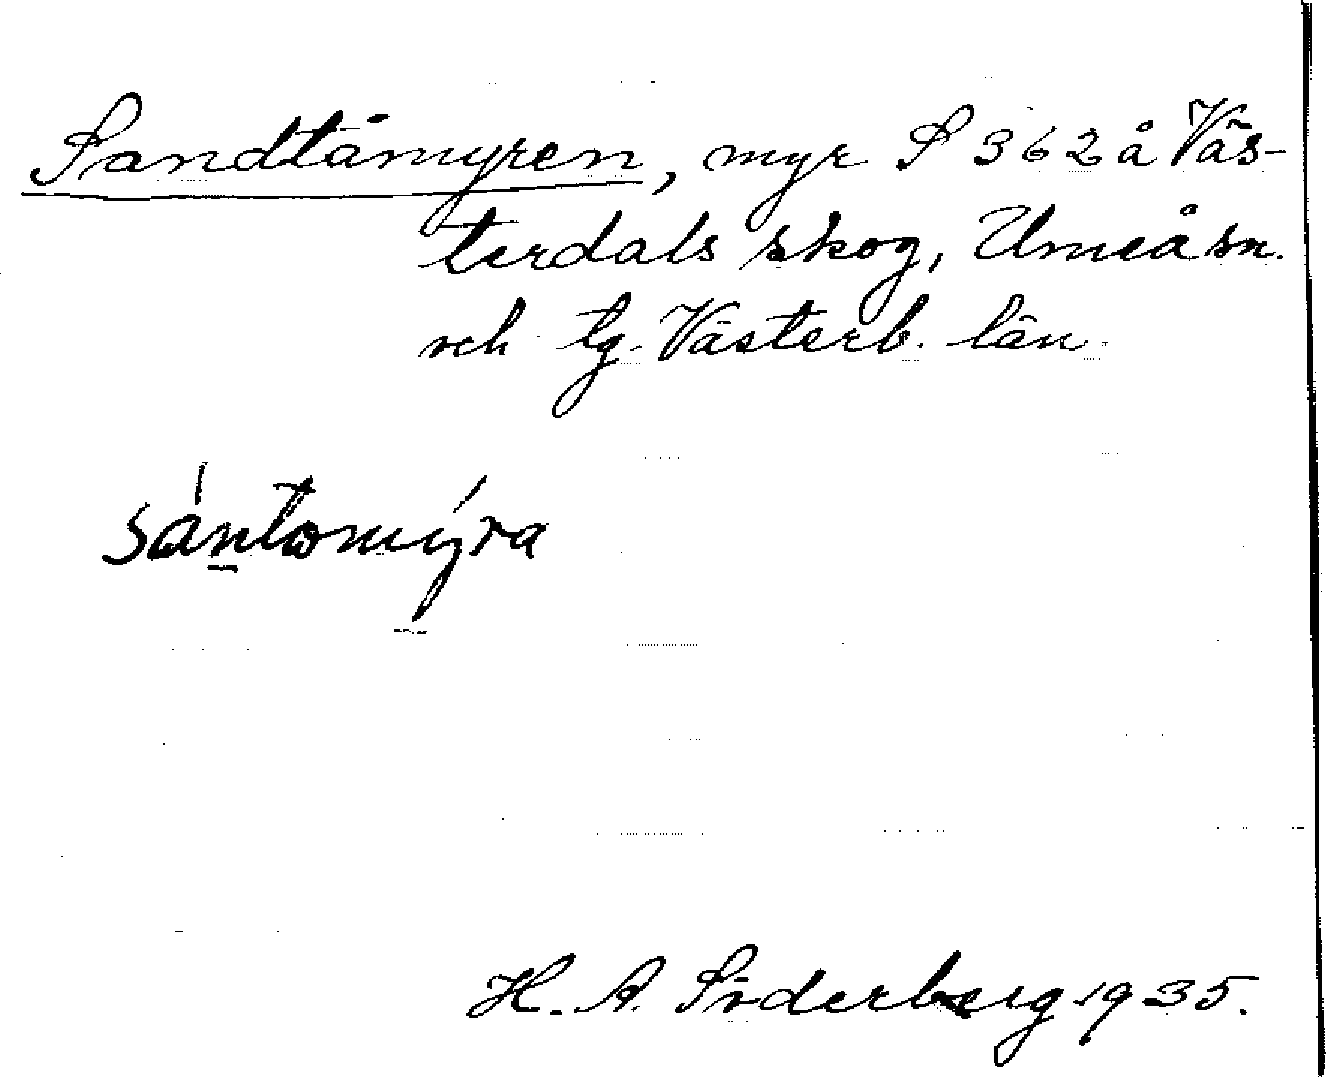 Sandtåmyren, myr S 362 å Väs-
terdals skog, Umeå sn.
och tg. Västerb. län.
sántomýra
H. A. Söderberg 1935.